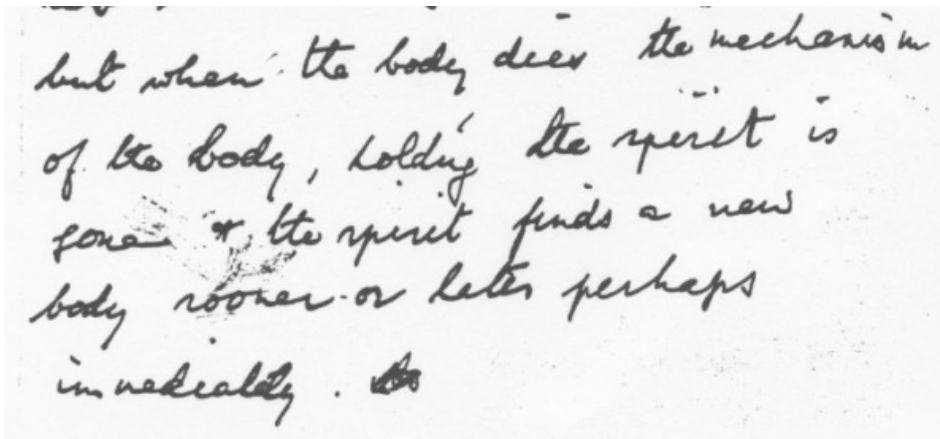 but when the body dies the mechanism
of the body, holding the spirit is
gone & the spirit finds a new
body sooner or later perhaps
immediately.